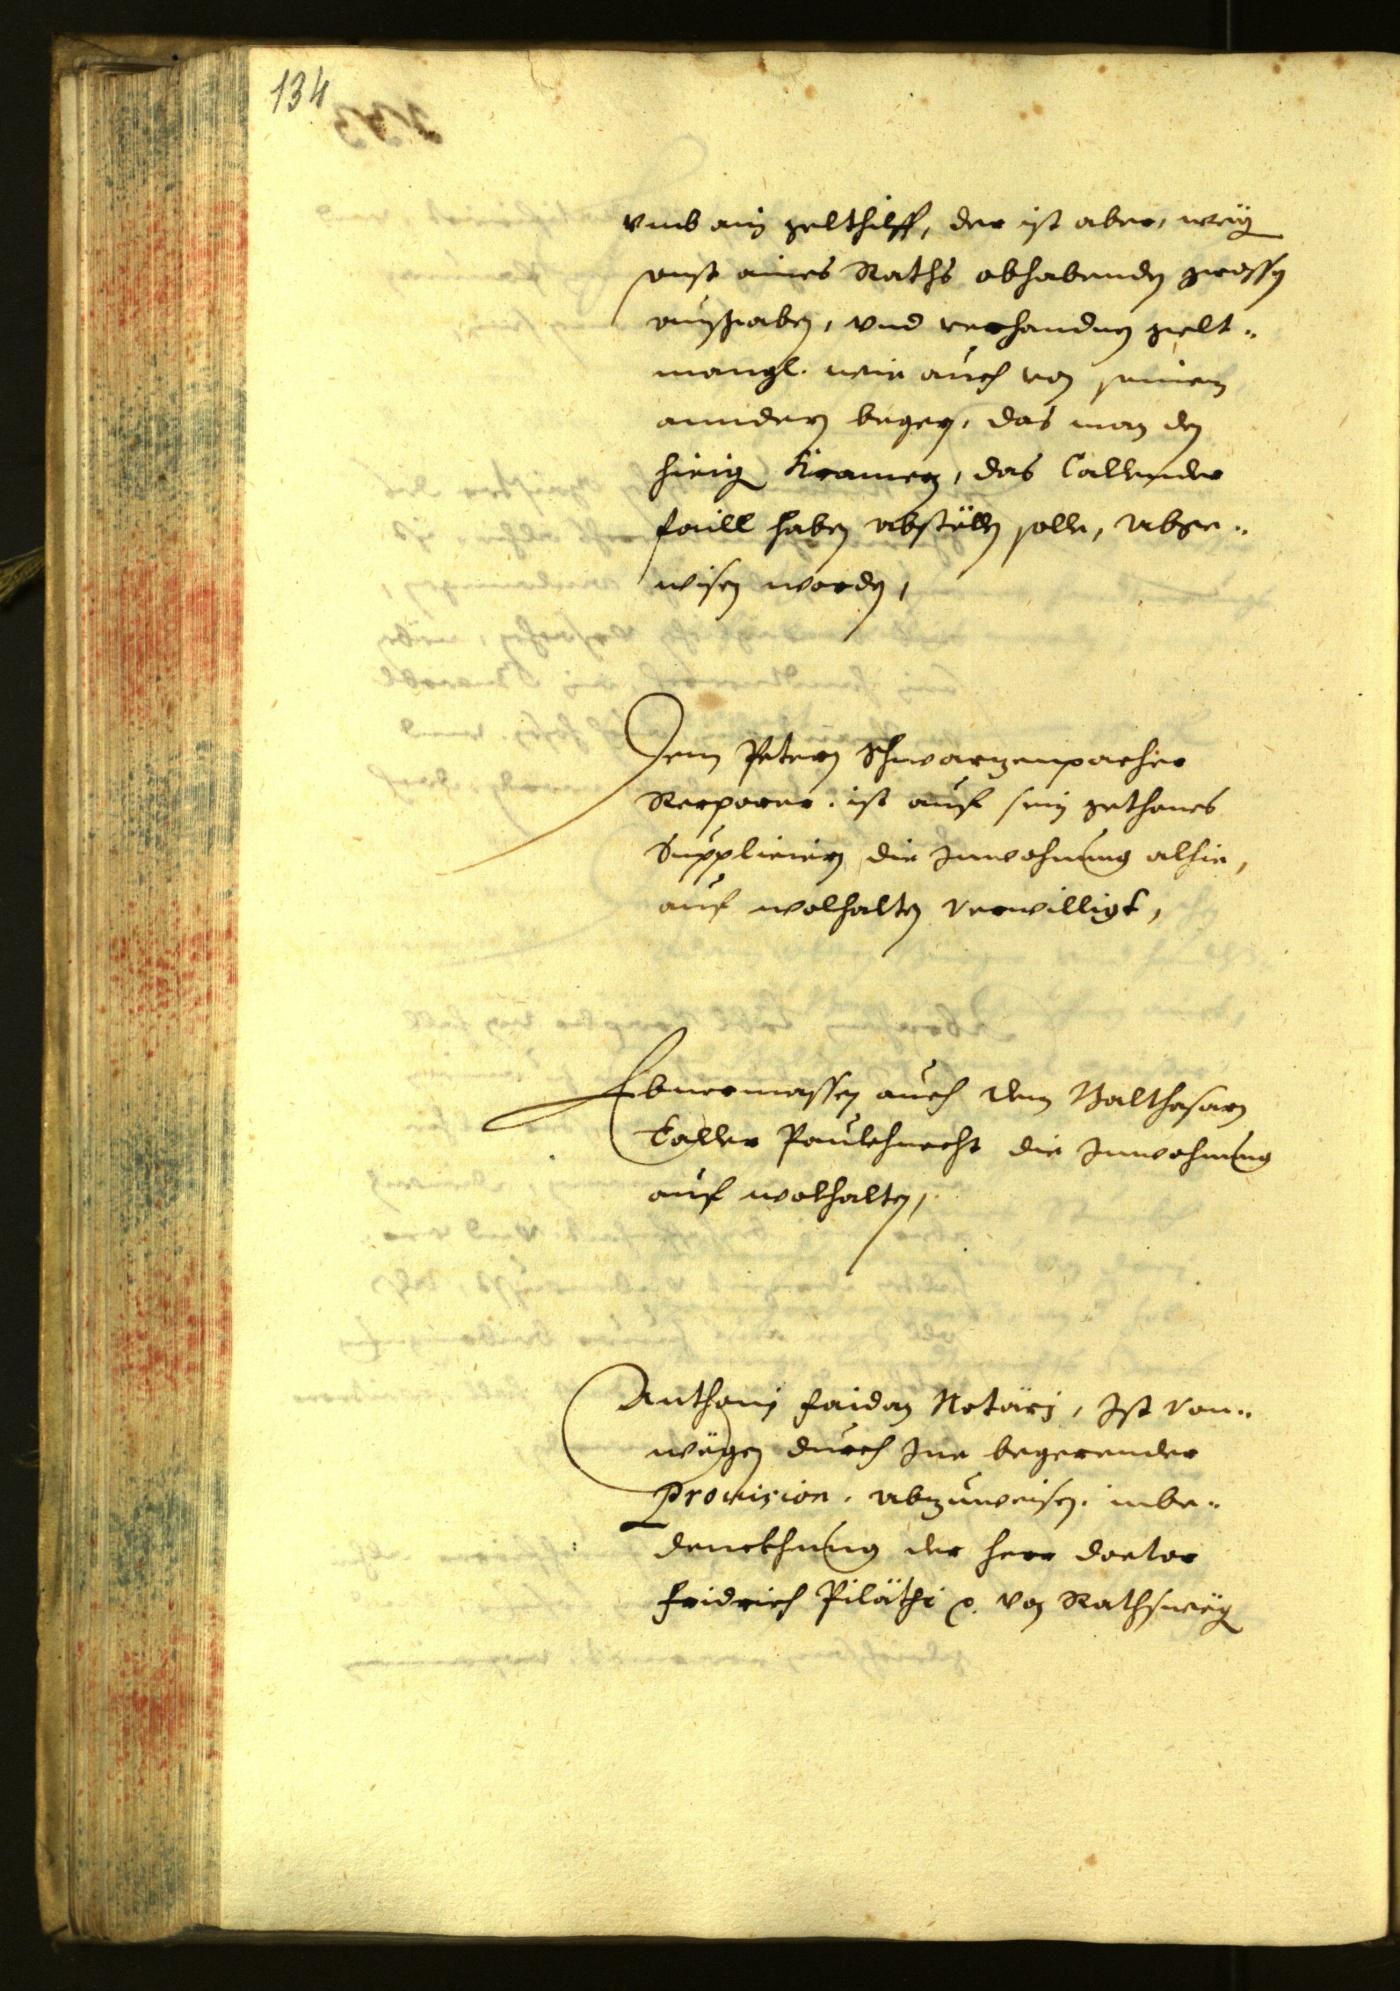 134
vmb ain gelthilff, der ist aber, weg
sonst aines Raths obhabenden grossen
ausgaben, vnd verhanden gelt-
mangl. wie auch von seinem
anndern begern, das man den
hieig Kramern, das Callender
faill haben abställn solle, abge-
wisen worden,
Dem Petern Schwarzenpacher
Rerporer. ist auf sein gethanes
Suppliciern die Inwohnung alhie,
auf wolhalten verwilligt,
Ebnermassen auch dem Balthasarn
Taller Paulchnecht die Inwohnung
auf wolhalten,
Anthoni faidan Notärj, Ist von-
wegen durch Ine begerender
Provision. abzuweisen. inbe-
denckhung der herr doctor
fridrich Piläthi von Rathsweg